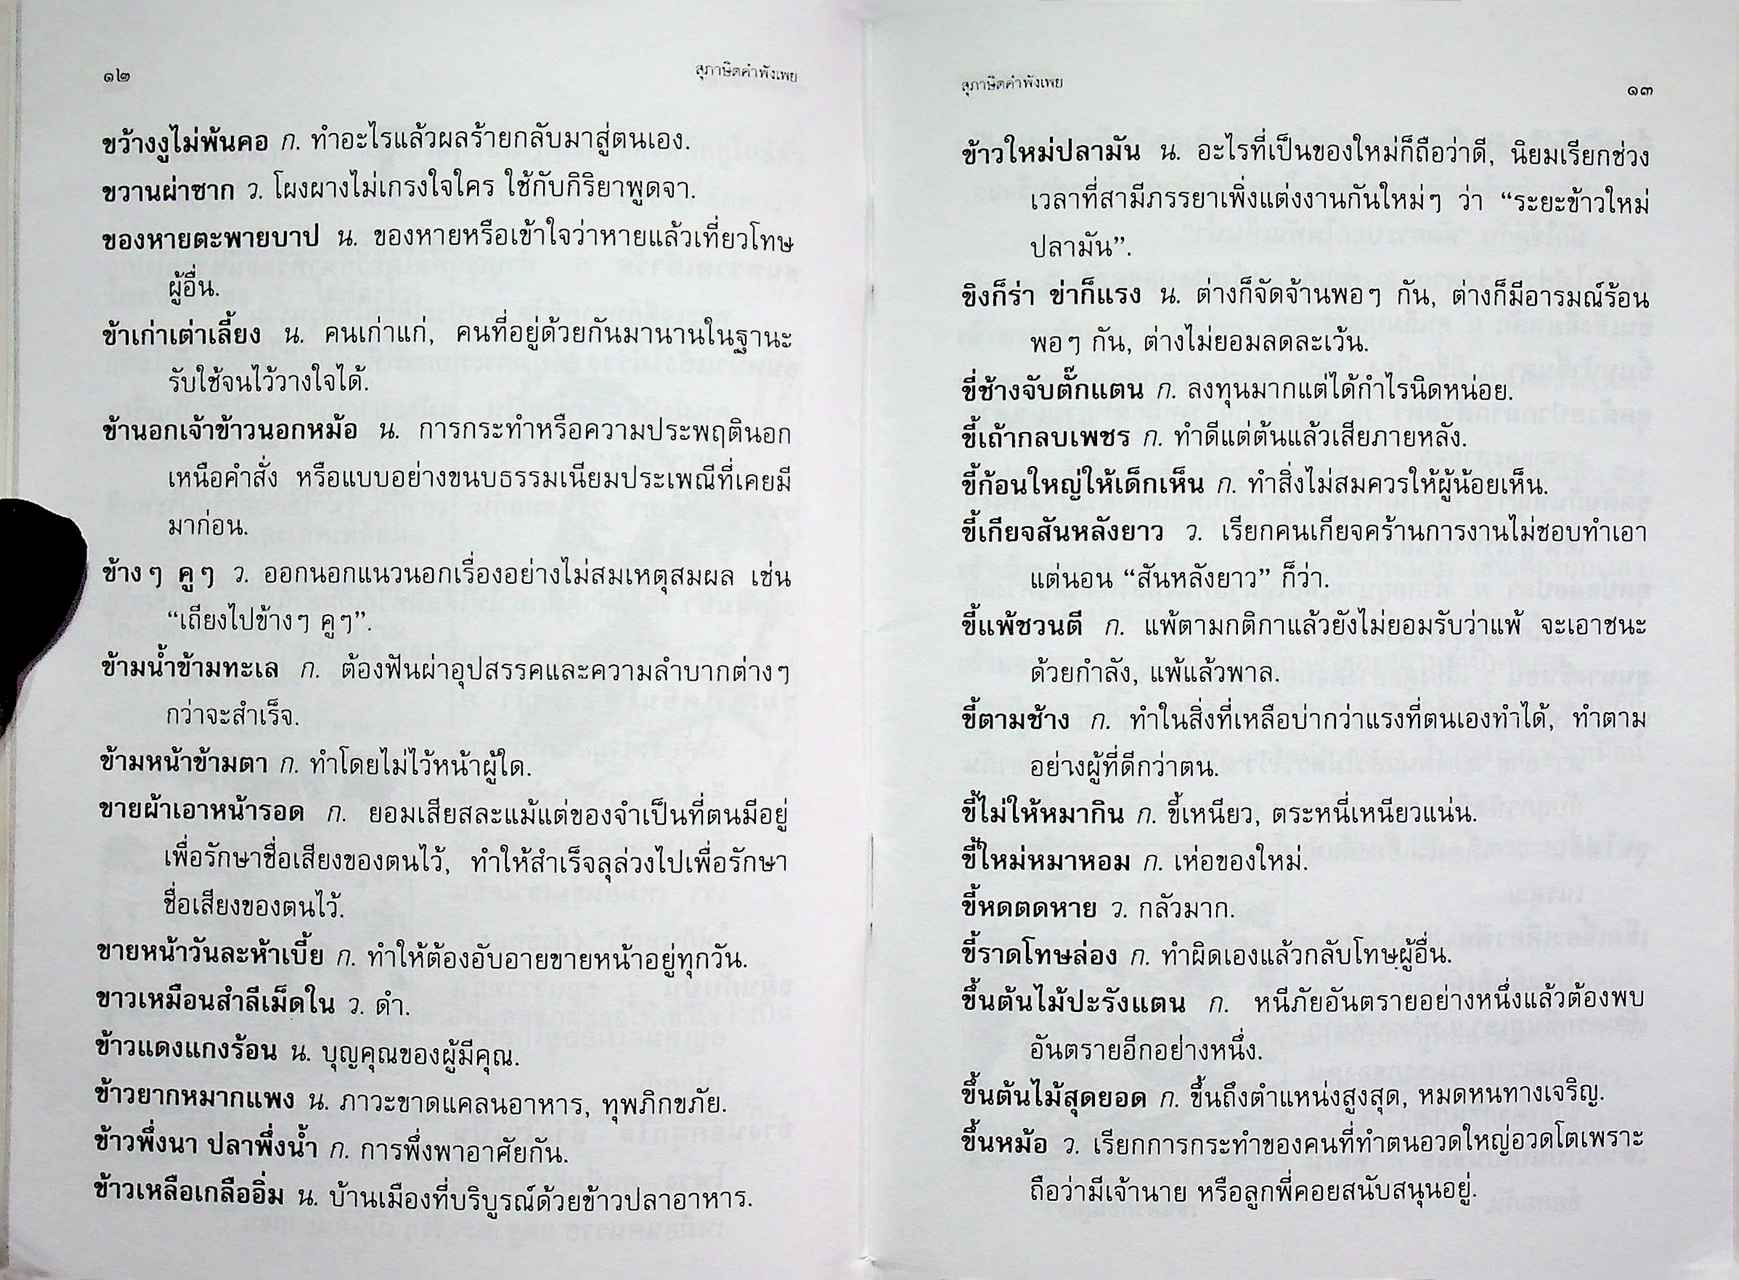 ๑๒
สุภาษิตคำพังเพย
ขว้างงูไม่พ้นคอ ก. ทำอะไรแล้วผลร้ายกลับมาสู่ตนเอง.
ขวานผ่าซาก ว. โผงผางไม่เกรงใจใคร ใช้กับกิริยาพูดจา.
ของหายตะพายบาป น. ของหายหรือเข้าใจว่าหายแล้วเที่ยวโทษ
ผู้อื่น.
ข้าเก่าเต่าเลี้ยง น. คนเก่าแก่, คนที่อยู่ด้วยกันมานานในฐานะ
รับใช้จนไว้วางใจได้.
ข้านอกเจ้าข้าวนอกหม้อ น. การกระทำหรือความประพฤตินอก
เหนือคำสั่ง หรือแบบอย่างขนบธรรมเนียมประเพณีที่เคยมี
มาก่อน.
ข้างๆ คูๆ ว. ออกนอกแนวนอกเรื่องอย่างไม่สมเหตุสมผล เช่น
“เถียงไปข้างๆ คูๆ”.
ข้ามน้ำข้ามทะเล ก. ต้องฟันผ่าอุปสรรคและความลำบากต่างๆ
กว่าจะสำเร็จ.
ข้ามหน้าข้ามตา ก. ทำโดยไม่ไว้หน้าผู้ใด.
ขายผ้าเอาหน้ารอด ก. ยอมเสียสละแม้แต่ของจำเป็นที่ตนมีอยู่
เพื่อรักษาชื่อเสียงของตนไว้, ทำให้สำเร็จลุล่วงไปเพื่อรักษา
ชื่อเสียงของตนไว้.
ขายหน้าวันละห้าเบี้ย ก. ทำให้ต้องอับอายขายหน้าอยู่ทุกวัน.
ขาวเหมือนสำลีเม็ดใน ว. ดำ.
ข้าวแดงแกงร้อน น. บุญคุณของผู้มีคุณ.
ข้าวยากหมากแพง น. ภาวะขาดแคลนอาหาร, ทุพภิกขภัย.
ข้าวพึ่งนา ปลาพึ่งน้ำ ก. การพึ่งพาอาศัยกัน.
ข้าวเหลือเกลืออิ่ม น. บ้านเมืองที่บริบูรณ์ด้วยข้าวปลาอาหาร.
สุภาษิตคำพังเพย
๑๓
ข้าวใหม่ปลามัน น. อะไรที่เป็นของใหม่ก็ถือว่าดี, นิยมเรียกช่วง
เวลาที่สามีภรรยาเพิ่งแต่งงานกันใหม่ๆ ว่า “ระยะข้าวใหม่
ปลามัน”.
ขิงก็ร่า ข่าก็แรง น. ต่างก็จัดจ้านพอๆ กัน, ต่างก็มีอารมณ์ร้อน
พอๆ กัน, ต่างไม่ยอมลดละเว้น.
ขี่ช้างจับตั๊กแตน ก. ลงทุนมากแต่ได้กำไรนิดหน่อย.
ขี้เถ้ากลบเพชร ก. ทำดีแต่ต้นแล้วเสียภายหลัง.
ขี้ก้อนใหญ่ให้เด็กเห็น ก. ทำสิ่งไม่สมควรให้ผู้น้อยเห็น.
ขี้เกียจสันหลังยาว ว. เรียกคนเกียจคร้านการงานไม่ชอบทำเอา
แต่นอน “สันหลังยาว” ก็ว่า.
ขี้แพ้ชวนตี ก. แพ้ตามกติกาแล้วยังไม่ยอมรับว่าแพ้ จะเอาชนะ
ด้วยกำลัง, แพ้แล้วพาล.
ขี้ตามช้าง ก. ทำในสิ่งที่เหลือบ่ากว่าแรงที่ตนเองทำได้, ทำตาม
อย่างผู้ที่ดีกว่าตน.
ขี้ไม่ให้หมากิน ก. ขี้เหนียว, ตระหนี่เหนียวแน่น.
ขี้ใหม่หมาหอม ก. เห่อของใหม่.
ขี้หดตดหาย ว. กลัวมาก.
ขี้ราดโทษล่อง ก. ทำผิดเองแล้วกลับโทษผู้อื่น.
ขึ้นต้นไม้ปะรังแตน ก. หนีภัยอันตรายอย่างหนึ่งแล้วต้องพบ
อันตรายอีกอย่างหนึ่ง.
ขึ้นต้นไม้สุดยอด ก. ขึ้นถึงตำแหน่งสูงสุด, หมดหนทางเจริญ.
ขึ้นหม้อ ว. เรียกการกระทำของคนที่ทำตนอวดใหญ่อวดโตเพราะ
ถือว่ามีเจ้านาย หรือลูกพี่คอยสนับสนุนอยู่.